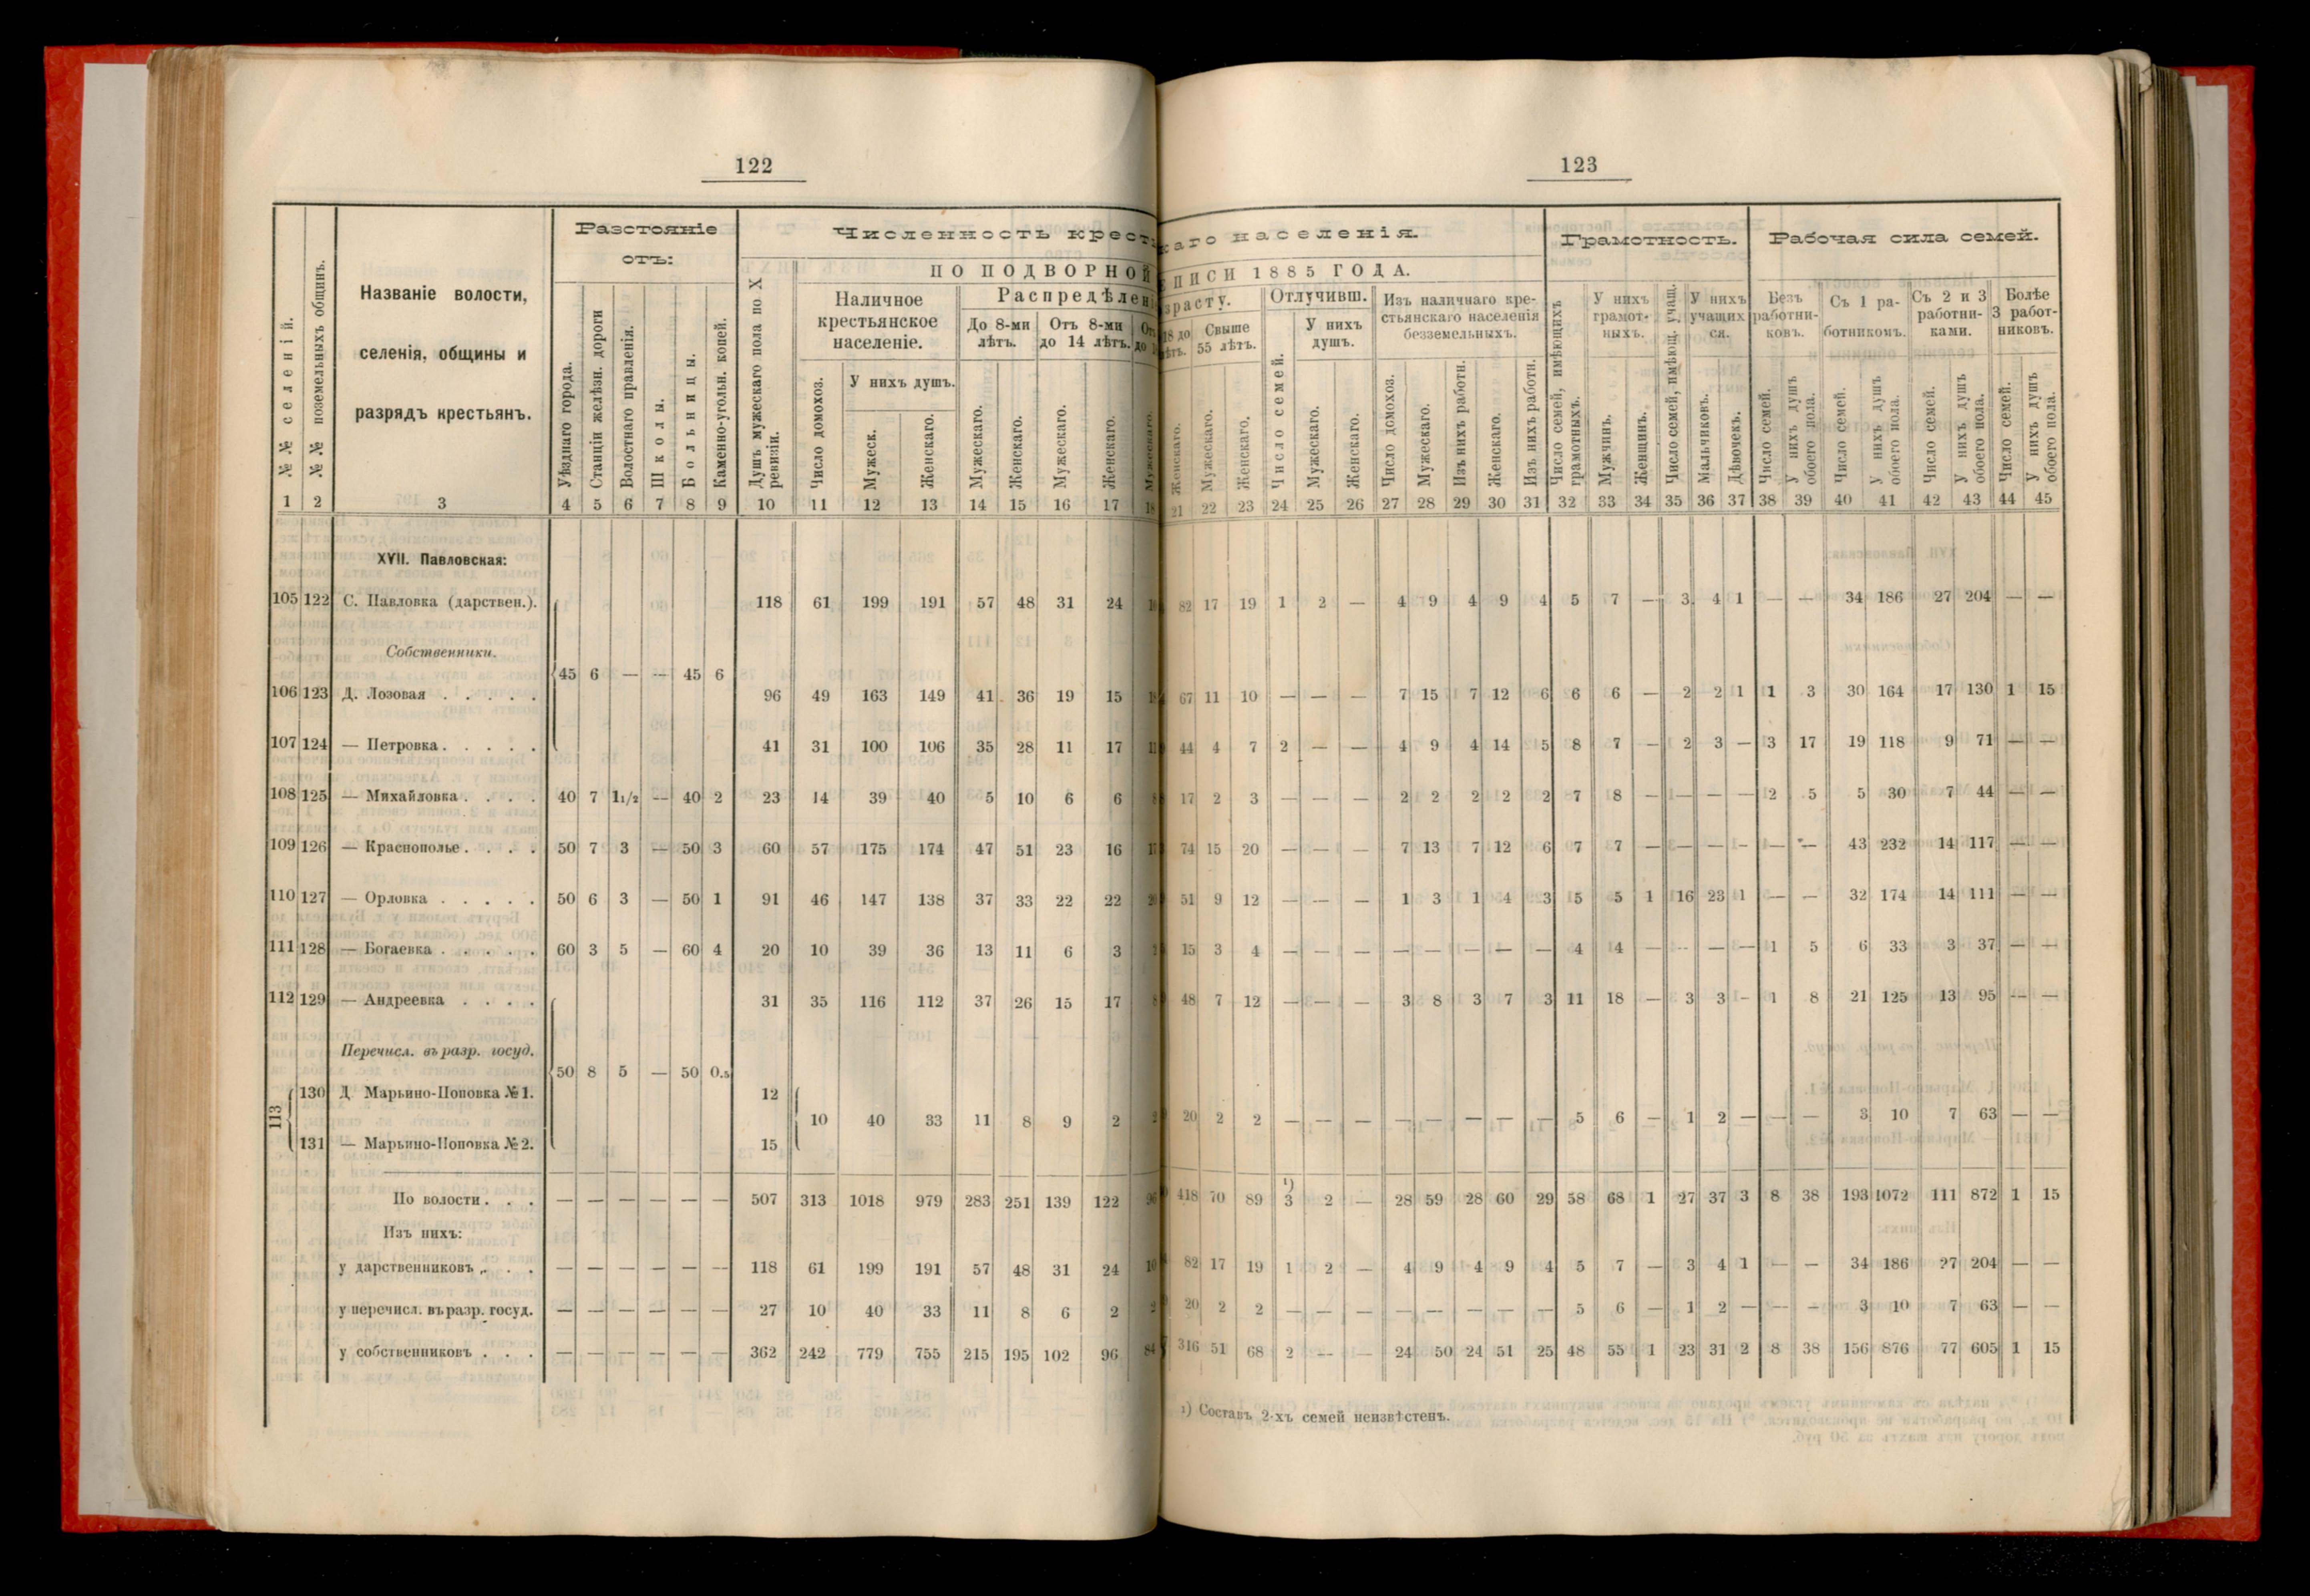 122
Разстояніе
отъ:
Численность крест
ПО ПОДВОРНОЙ
№№ селеній.
№№ поземельныхъ общинъ.
Названіе волости,
селенія, общины и
разрядъ крестьянъ.
Уѣзднаго города.
Станціи желѣзн. дороги
Волостнаго правленія.
Школы.
Больницы.
Каменно-угольн. копей.
Душъ мужескаго пола по X ревизіи.
Наличное
крестьянское
населеніе.
Число домохоз.
У нихъ душъ.
Мужеск.
Женскаго.
Распредѣлені
До 8-ми лѣтъ.
Отъ 8-ми до 14 лѣтъ.
Мужескаго.
Женскаго.
Мужескаго.
Женскаго.
Мужескаго.
1 2 3 4 5 6 7 8 9 10 11 12 13 14 15 16 17 18
XVII. Павловская:
105 122 С. Павловка (дарствен.). 118 61 199 191 57 48 31 24
Собственники.
45 6 — — 45 6
106 123 Д. Лозовая . . . . . 96 49 163 149 41 36 19 15
107 124 — Петровка . . . . . 41 31 100 106 35 28 11 17
108 125 — Михайловка . . . . 40 7 1 1/2 — 40 2 23 14 39 40 5 10 6 6
109 126 — Краснополье . . . . 50 7 3 — 50 3 60 57 175 174 47 51 23 16
110 127 — Орловка . . . . . 50 6 3 — 50 1 91 46 147 138 37 33 22 22
111 128 — Богаевка . . . . . 60 3 5 — 60 4 20 10 39 36 13 11 6 3
112 129 — Андреевка . . . . 31 35 116 112 37 26 15 17
Перечисл. въ разр. госуд.
50 8 5 — 50 0.5
113
130 Д. Марьино-Поповка № 1. 12
10 40 33 11 8 9 2
131 — Марьино-Поповка № 2. 15
По волости . . . — — — — — — 507 313 1018 979 283 251 139 122
Изъ нихъ:
у дарственниковъ . . . — — — — — — 118 61 199 191 57 48 31 24
у перечисл. въ разр. госуд. — — — — — — 27 10 40 33 11 8 6 2
у собственниковъ . . . — — — — — — 362 242 779 755 215 195 102 96 84
123
каго населенія.
ПИСИ 1885 ГОДА.
Грамотность.
Рабочая сила семей.
зрасту.
18 до
Свыше
55 лѣтъ.
Женскаго.
Мужескаго.
Женскаго.
Отлучивш.
Число семей.
У нихъ
душъ.
Мужескаго.
Женскаго.
Изъ наличнаго кре-
стьянскаго населенія
безземельныхъ.
Число домохоз.
Мужескаго.
Изъ нихъ работн.
Женскаго.
Изъ нихъ работн.
Число семей, имѣющихъ грамотныхъ.
У нихъ
грамот-
ныхъ.
Мужчинъ.
Женщинъ.
Число семей, имѣющ. учащ.
У нихъ
учащих
ся.
Мальчиковъ.
Дѣвочекъ.
Безъ
работни-
ковъ.
Число семей.
У нихъ душъ обоего пола.
Съ 1 ра-
ботникомъ.
Число семей.
У нихъ душъ обоего пола.
Съ 2 и 3
работни-
ками.
Число семей.
У нихъ душъ обоего пола.
Болѣе
3 работ-
никовъ.
Число семей.
У нихъ душъ обоего пола.
21 22 23 24 25 26 27 28 29 30 31 32 33 34 35 36 37 38 39 40 41 42 43 44 45
82 17 19 1 2 — 4 9 4 9 4 5 7 — 3 4 1 — — 34 186 27 204 — —
67 11 10 — — — 7 15 7 12 6 6 6 — 2 2 1 1 3 30 164 17 130 1 15
44 4 7 2 — — 4 9 4 14 5 8 7 — 2 3 — 3 17 19 118 9 71 — —
17 2 3 — — — 2 2 2 2 2 7 8 — — — — 2 5 5 30 7 44 — —
74 15 20 — — — 7 13 7 12 6 7 7 — — — — — — 43 232 14 117 — —
51 9 12 — — — 1 3 1 4 3 5 5 1 16 23 1 — — 32 174 14 111 — —
15 3 4 — — — — — — — — 4 4 — — — — 1 5 6 33 3 37 — —
48 7 12 — — — 3 8 3 7 3 11 18 — 3 3 — 1 8 21 125 13 95 — —
20 2 2 — — — — — — — — 5 6 — 1 2 — — — 3 10 7 63 — —
418 70 89 ¹) 3 2 — 28 59 28 60 29 58 68 1 27 37 3 8 38 193 1072 111 872 1 15
82 17 19 1 2 — 4 9 4 9 4 5 7 — 3 4 1 — — 34 186 27 204 — —
20 2 2 — — — — — — — — 5 6 — 1 2 — — — 3 10 7 63 — —
316 51 68 2 — — 24 50 24 51 25 48 55 1 23 31 2 8 38 156 876 77 605 1 15
¹) Составъ 2-хъ семей неизвѣстенъ.